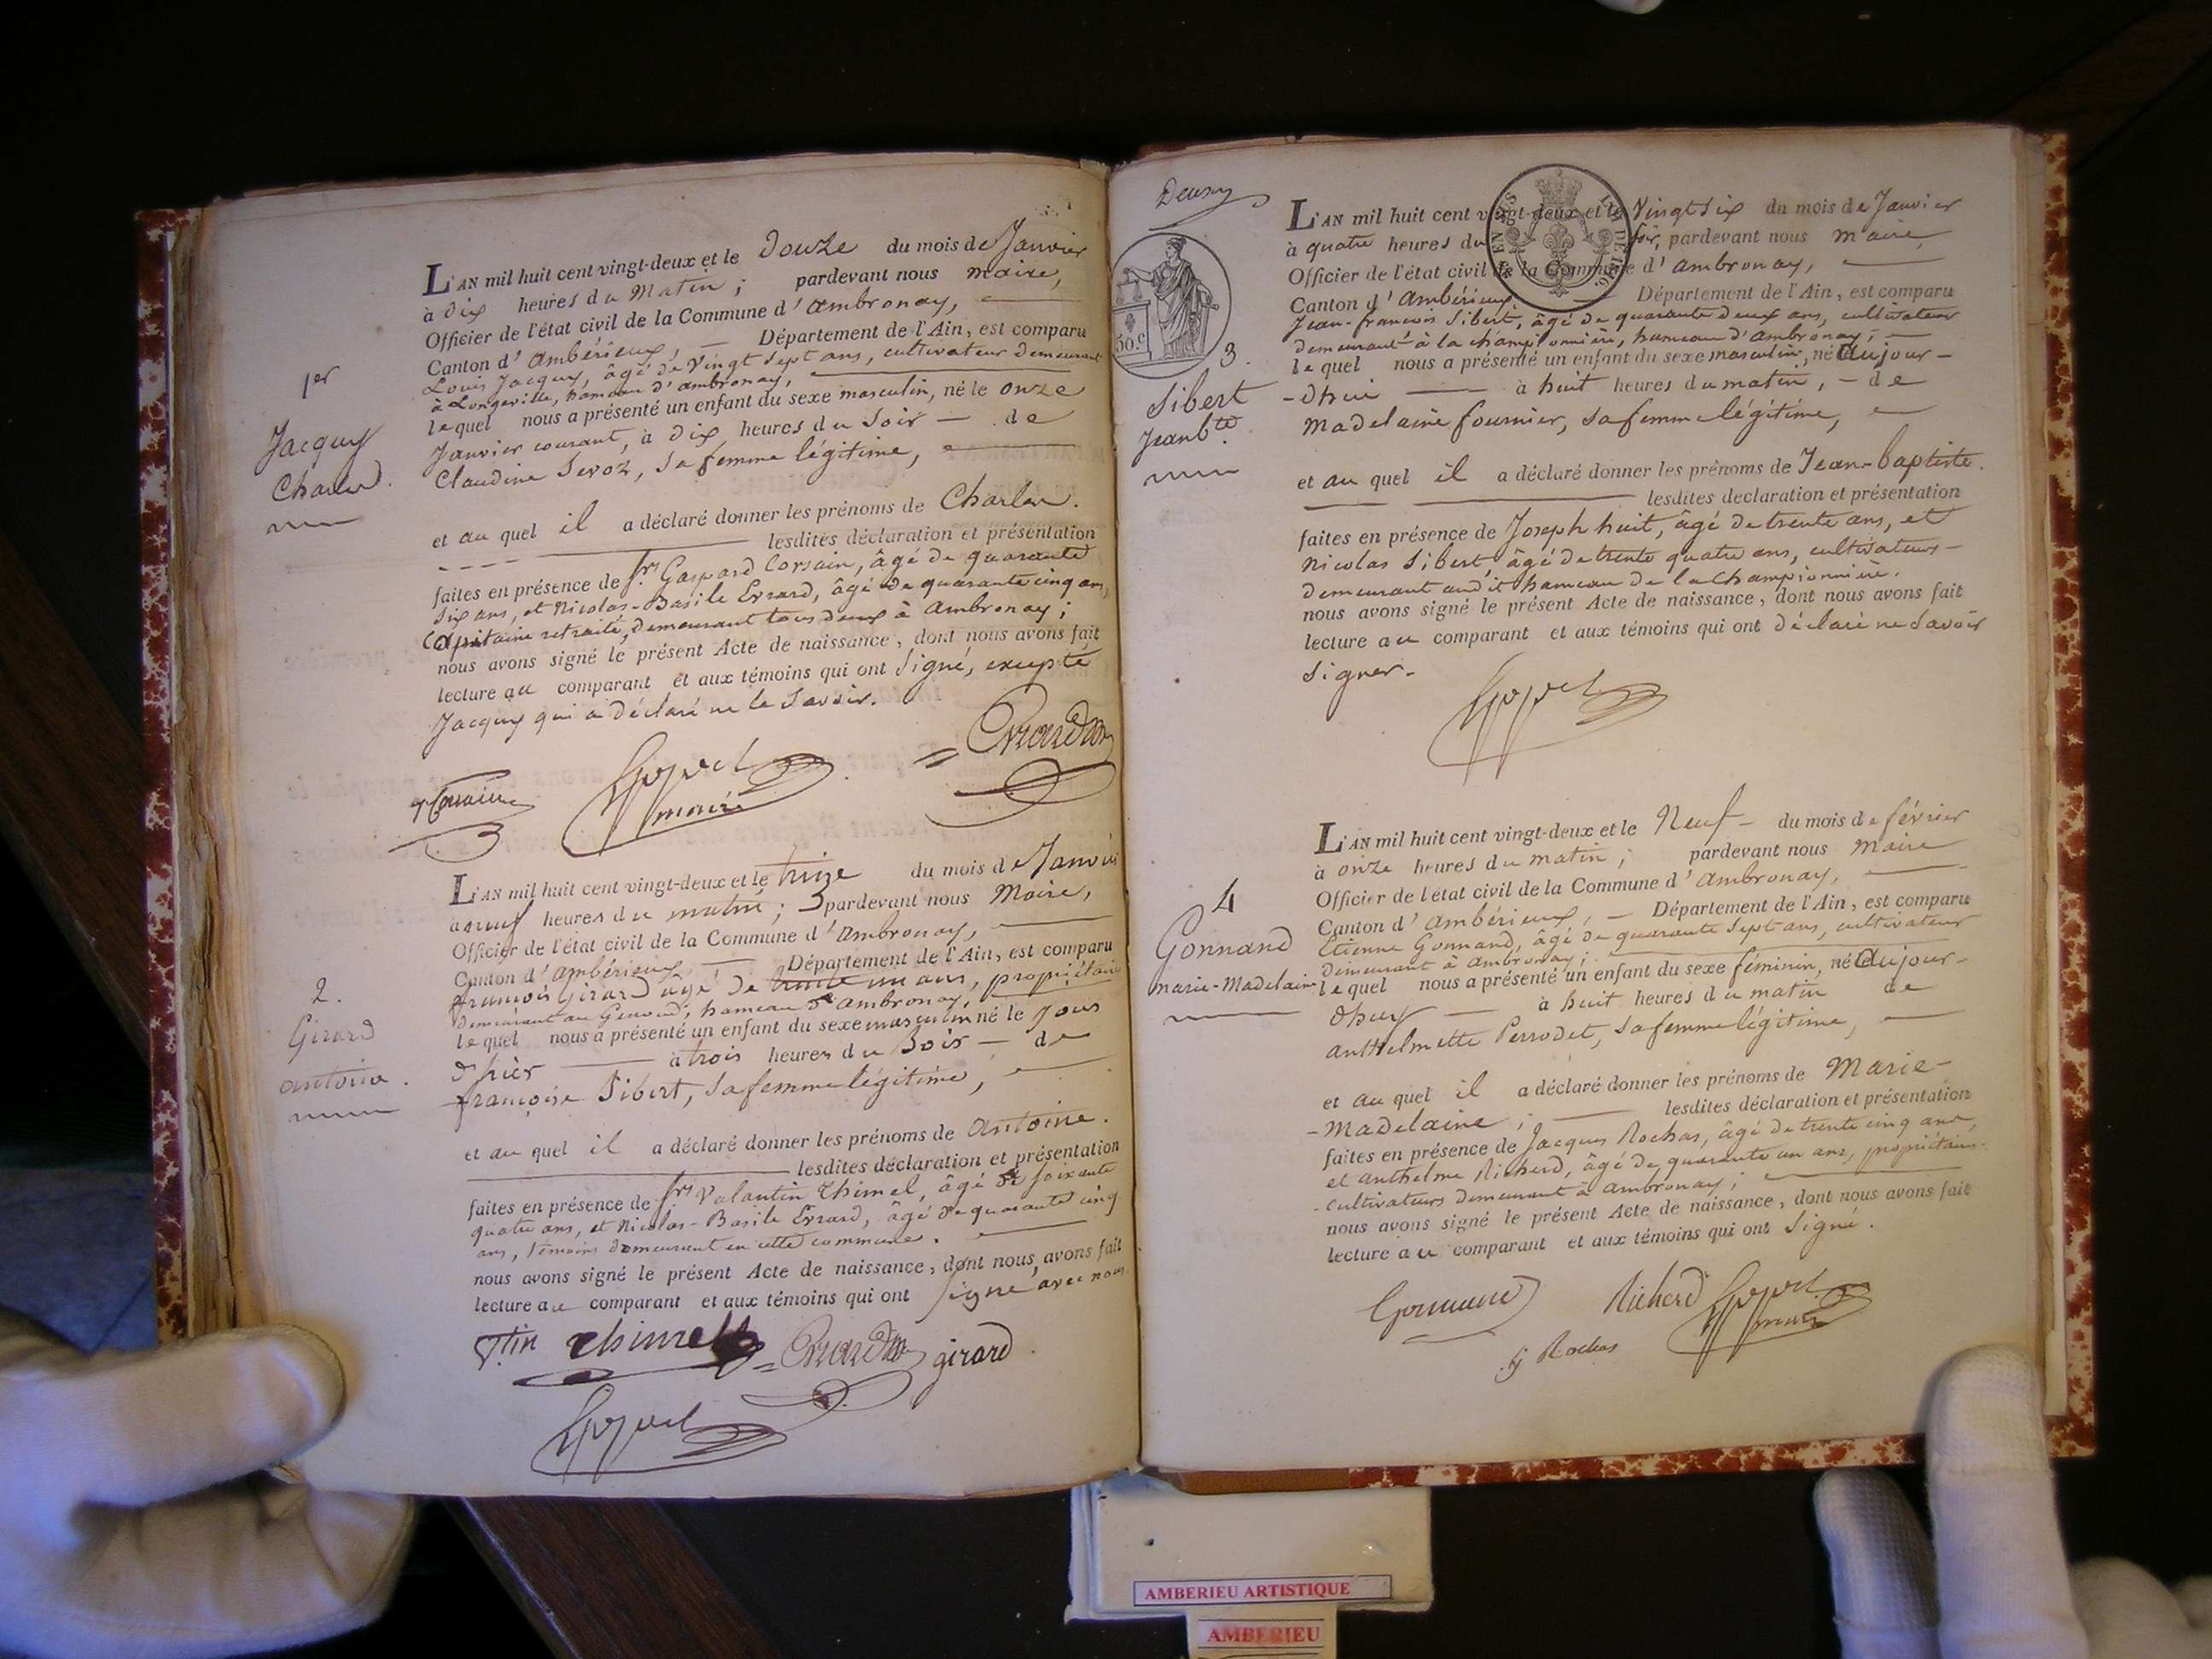 1er
Jacquy
Charles.
L'AN mil huit cent vingt-deux et le douze du mois de Janvier
à dix heures du Matin ; pardevant nous maire,
Officier de l'état civil de la Commune d'ambronay,
Canton d'ambérieux, — Département de l'Ain, est comparu
Louis Jacquy, âgé de vingt sept ans, cultivateur demeurant
à Longeville, hameau d'ambronay,
lequel nous a présenté un enfant du sexe masculin, né le onze
Janvier courant, à dix heures du Soir — de
Claudine Sevoz, sa femme légitime,
et au quel il a déclaré donner les prénoms de Charles.
lesdites déclaration et présentation
faites en présence de Sr. Gaspard Corsain, âgé de quarante
six ans, et Nicolas-Basile Errard, âgé de quarante cinq ans,
Capitaine retraité, demeurant tous deux à ambronay ;
nous avons signé le présent Acte de naissance, dont nous avons fait
lecture au comparant et aux témoins qui ont Signé, excepté
Jacquy qui a déclaré ne le Savoir.
maire
2.
Girard
antoine.
L'AN mil huit cent vingt-deux et le treize du mois de Janvier
à neuf heures du matin ; pardevant nous Maire,
Officier de l'état civil de la Commune d'ambronay,
Canton d'ambérieux, — Département de l'Ain, est comparu
françois Girard âgé de trente un ans, propriétaire
demeurant au Genoud, hameau d'ambronay,
lequel nous a présenté un enfant du sexe masculin né le jour
d'hièr — à trois heures du Soir — de
françoise Sibert, sa femme légitime,
et au quel il a déclaré donner les prénoms de antoine.
lesdites déclaration et présentation
faites en présence de Srs Valantin Thimel, âgé de soixante
quatre ans, et Nicolas-Basile Errard, âgé de quarante cinq
ans, témoins demeurant en cette commune.
nous avons signé le présent Acte de naissance, dont nous avons fait
lecture au comparant et aux témoins qui ont signé avec nous
V.tin thimel girard
30.c
3.
Sibert
Jean bte.
L'AN mil huit cent vingt-deux et le Vingt Six du mois de Janvier
à quatre heures du soir, pardevant nous maire
Officier de l'état civil de la Commune d'ambronay,
Canton d'ambérieux, — Département de l'Ain, est comparu
Jean-francois Sibert, âgé de quarante deux ans, cultivateur
demeurant à la championnière, hameau d'ambronay ;
lequel nous a présenté un enfant du sexe masculin, né aujour-
-dhui — à huit heures du matin, — de
Madelaine fournier, sa femme légitime,
et au quel il a déclaré donner les prénoms de Jean-baptiste.
lesdites declaration et présentation
faites en présence de Joseph huit, âgé de trente ans, et
Nicolas Sibert, âgé de trente quatre ans, cultivateurs
demeurant audit hameau de la Championnière.
nous avons signé le présent Acte de naissance, dont nous avons fait
lecture au comparant et aux témoins qui ont déclaré ne Savoir
Signer.
4
Gonnand
marie-Madelaine
L'AN mil huit cent vingt-deux et le Neuf — du mois de février
à onze heures du matin ; pardevant nous maire
Officier de l'état civil de la Commune d'ambronay,
Canton d'ambérieux, — Département de l'Ain, est comparu
Etienne Gonnand, âgé de quarante sept ans, cultivateur
demeurant à ambronay ;
lequel nous a présenté un enfant du sexe féminin, né aujour-
dhuy — à huit heures du matin de
anthelmette Perrodet, sa femme légitime,
et au quel il a déclaré donner les prénoms de Marie-
-Madelaine ; lesdites déclaration et présentation
faites en présence de Jacques Rochas, âgé de trente cinq ans,
et anthelme Richerd, âgé de quarante un ans, propriétaires
-cultivateurs demeurant à ambronay ;
nous avons signé le présent Acte de naissance, dont nous avons fait
lecture au comparant et aux témoins qui ont Signé.
Gonnand Richerd
maire
j Rochas
AMBERIEU ARTISTIQUE
AMBERIEU